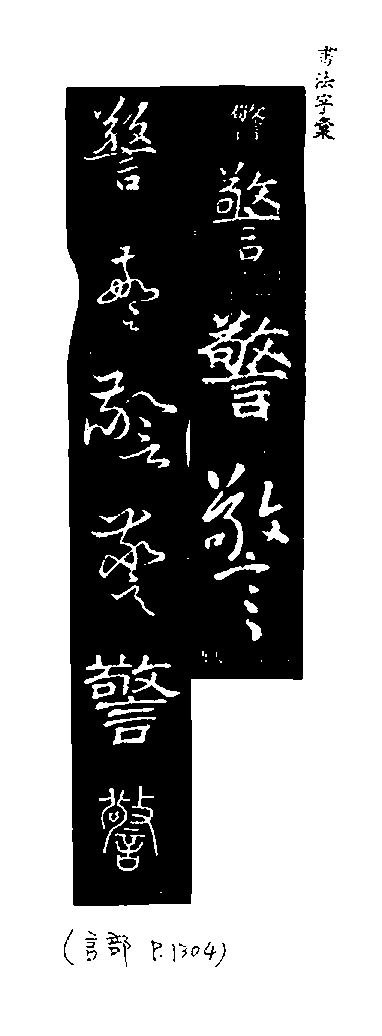 書法字彙
警
警
警
警
警
警
警
警
警
警
(言部 P.1304)